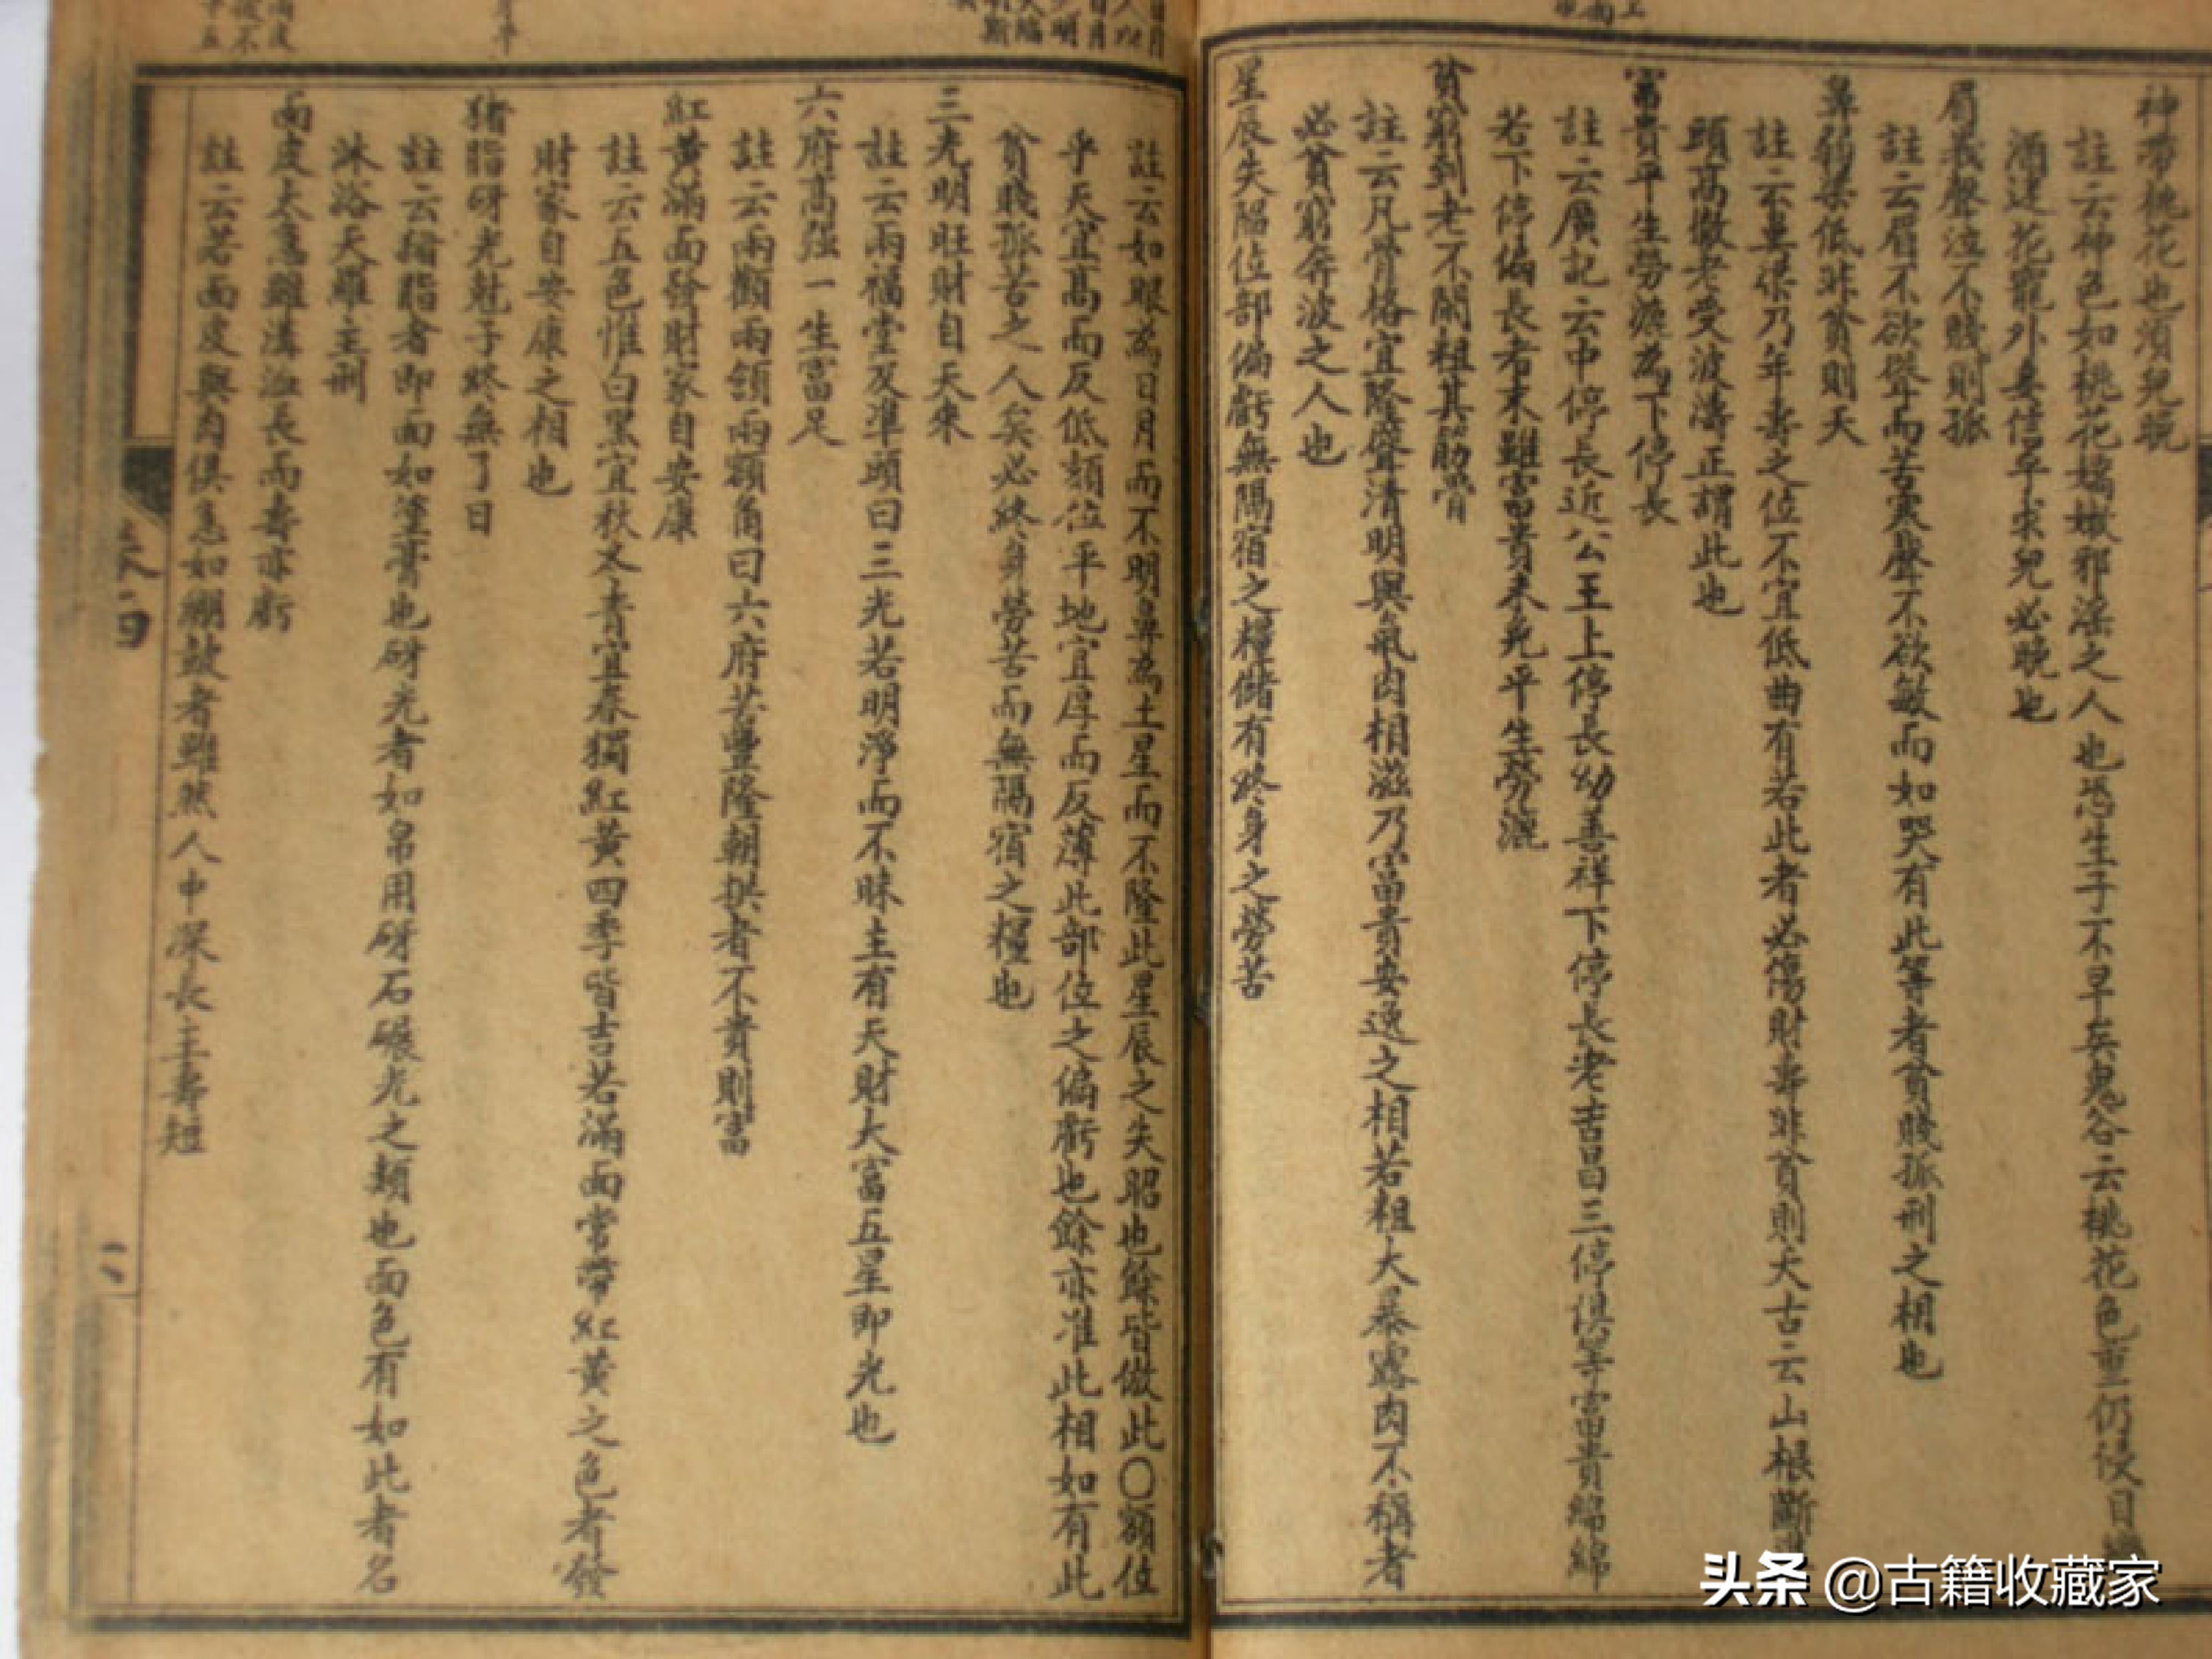 神帶桃花也須兒晚
註云神色如桃花嬌嫩邪淫之人也恐生子不早矣鬼谷云桃花色重仍侵目
酒迷花寵外妻信乎求兒必晚也
眉蹙聲泣不賤則孤
註云眉不欲蹙而苦寒聲不欲敏而如哭有此等者貧賤孤刑之相也
鼻弱梁低非貧則夭
註云其梁乃年壽之位不宜低曲有若此者必傷財壽非貧則夭古云山根斷
頭高撒老受波濤正謂此也
富貴平生勞漉為下停長
註云廣記云中停長近公王上停長幼善祥下停長老吉昌三停俱等富貴綿綿
若下停偏長者末雖富貴未免平生勞漉
貧窮到老不閑粗其筋骨
註云凡骨格宜隆聳清明與氣肉相滋乃富貴安逸之相若粗大暴露肉不稱者
必貧窮奔波之人也
星辰失陷位部偏虧無隔宿之糧儲有終身之勞苦
註云如眼為日月而不明鼻為土星而不隆此星辰之失陷也餘皆倣此〇額位
乎天宜高而反低頦位平地宜厚而反薄此部位之偏虧也餘亦准此相如有此
貧賤孤苦之人矣必終身勞苦而無隔宿之糧也
三光明旺財自天來
註云兩福堂及準頭曰三光若明淨而不昧主有天財大富五星即光也
六府高強一生富足
註云兩顴兩頷兩額角曰六府若豐隆朝拱者不貴則富
紅黃滿面發財家自安康
註云五色惟白黑宜秋冬青宜春獨紅黃四季皆吉若滿面常帶紅黃之色者發
財家自安康之相也
猪脂砑光尅子終無了日
註云猪脂者即面如塗膏也砑光者如帛用砑石碾光之類也面色有如此者名
沐浴天羅主刑
面皮太急雖溝洫長而壽亦虧
註云若面皮與肉俱急如綳鼓者雖然人中深長主壽短
卷四
二
头条 @古籍收藏家